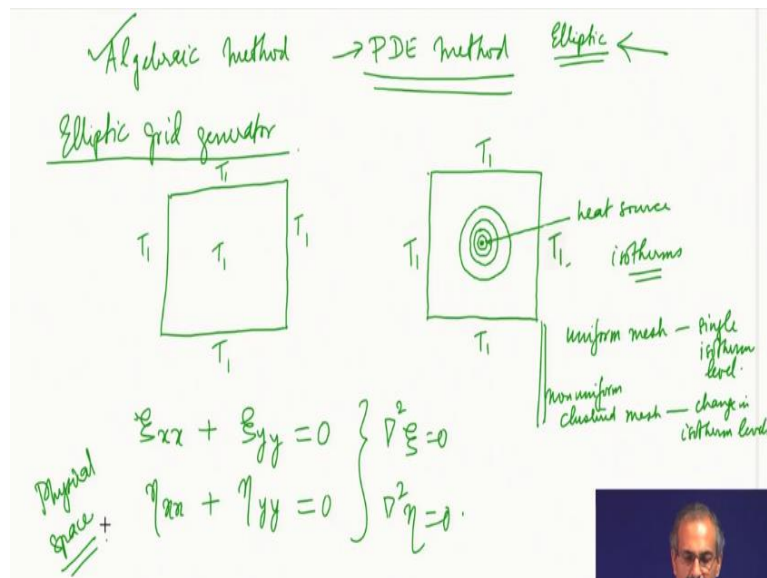 ✓Algebraic method → PDE method Elliptic ←
Elliptic grid generator
T₁
T₁ T₁ T₁
T₁
T₁
T₁ T₁.
T₁
heat source
isotherms
uniform mesh — single
isotherm
level.
nonuniform
clustered mesh — change in
isotherm level
ξxx + ξyy = 0 } ∇²ξ = 0
ηxx + ηyy = 0 } ∇²η = 0.
Physical
space